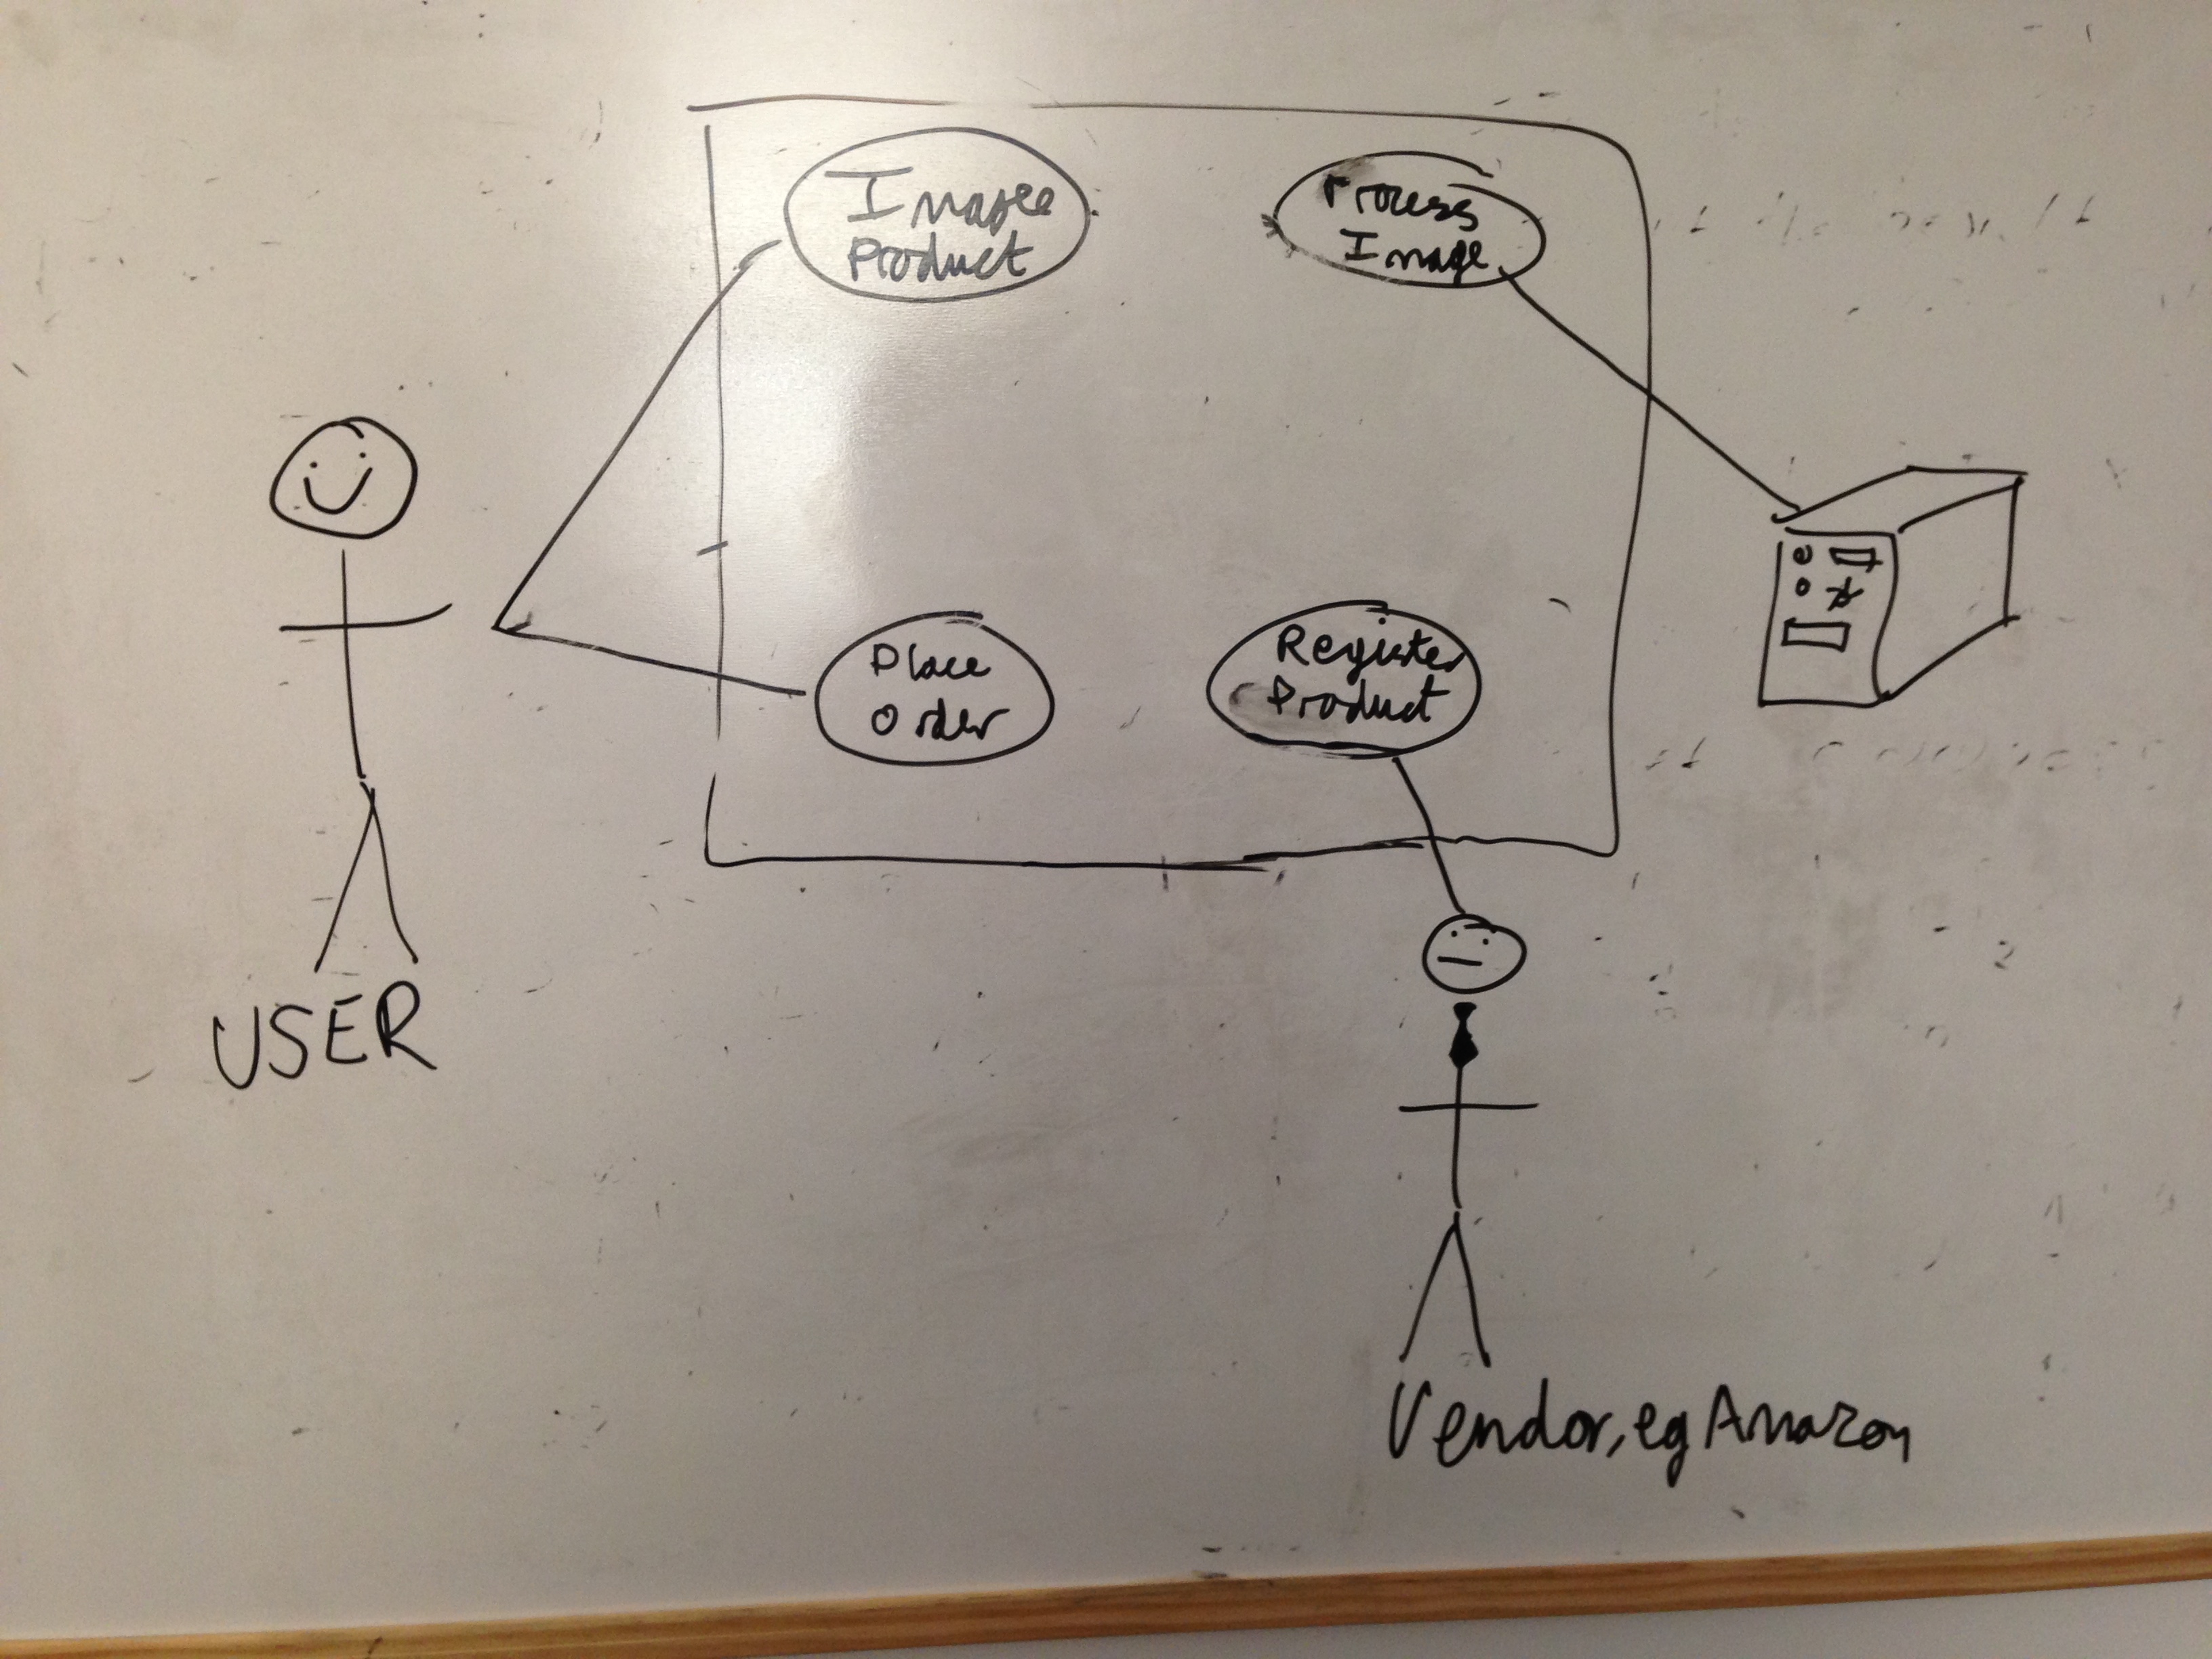 Image
Product
Process
Image
Place
Order
Register
Product
USER
Vendor, eg Amazon